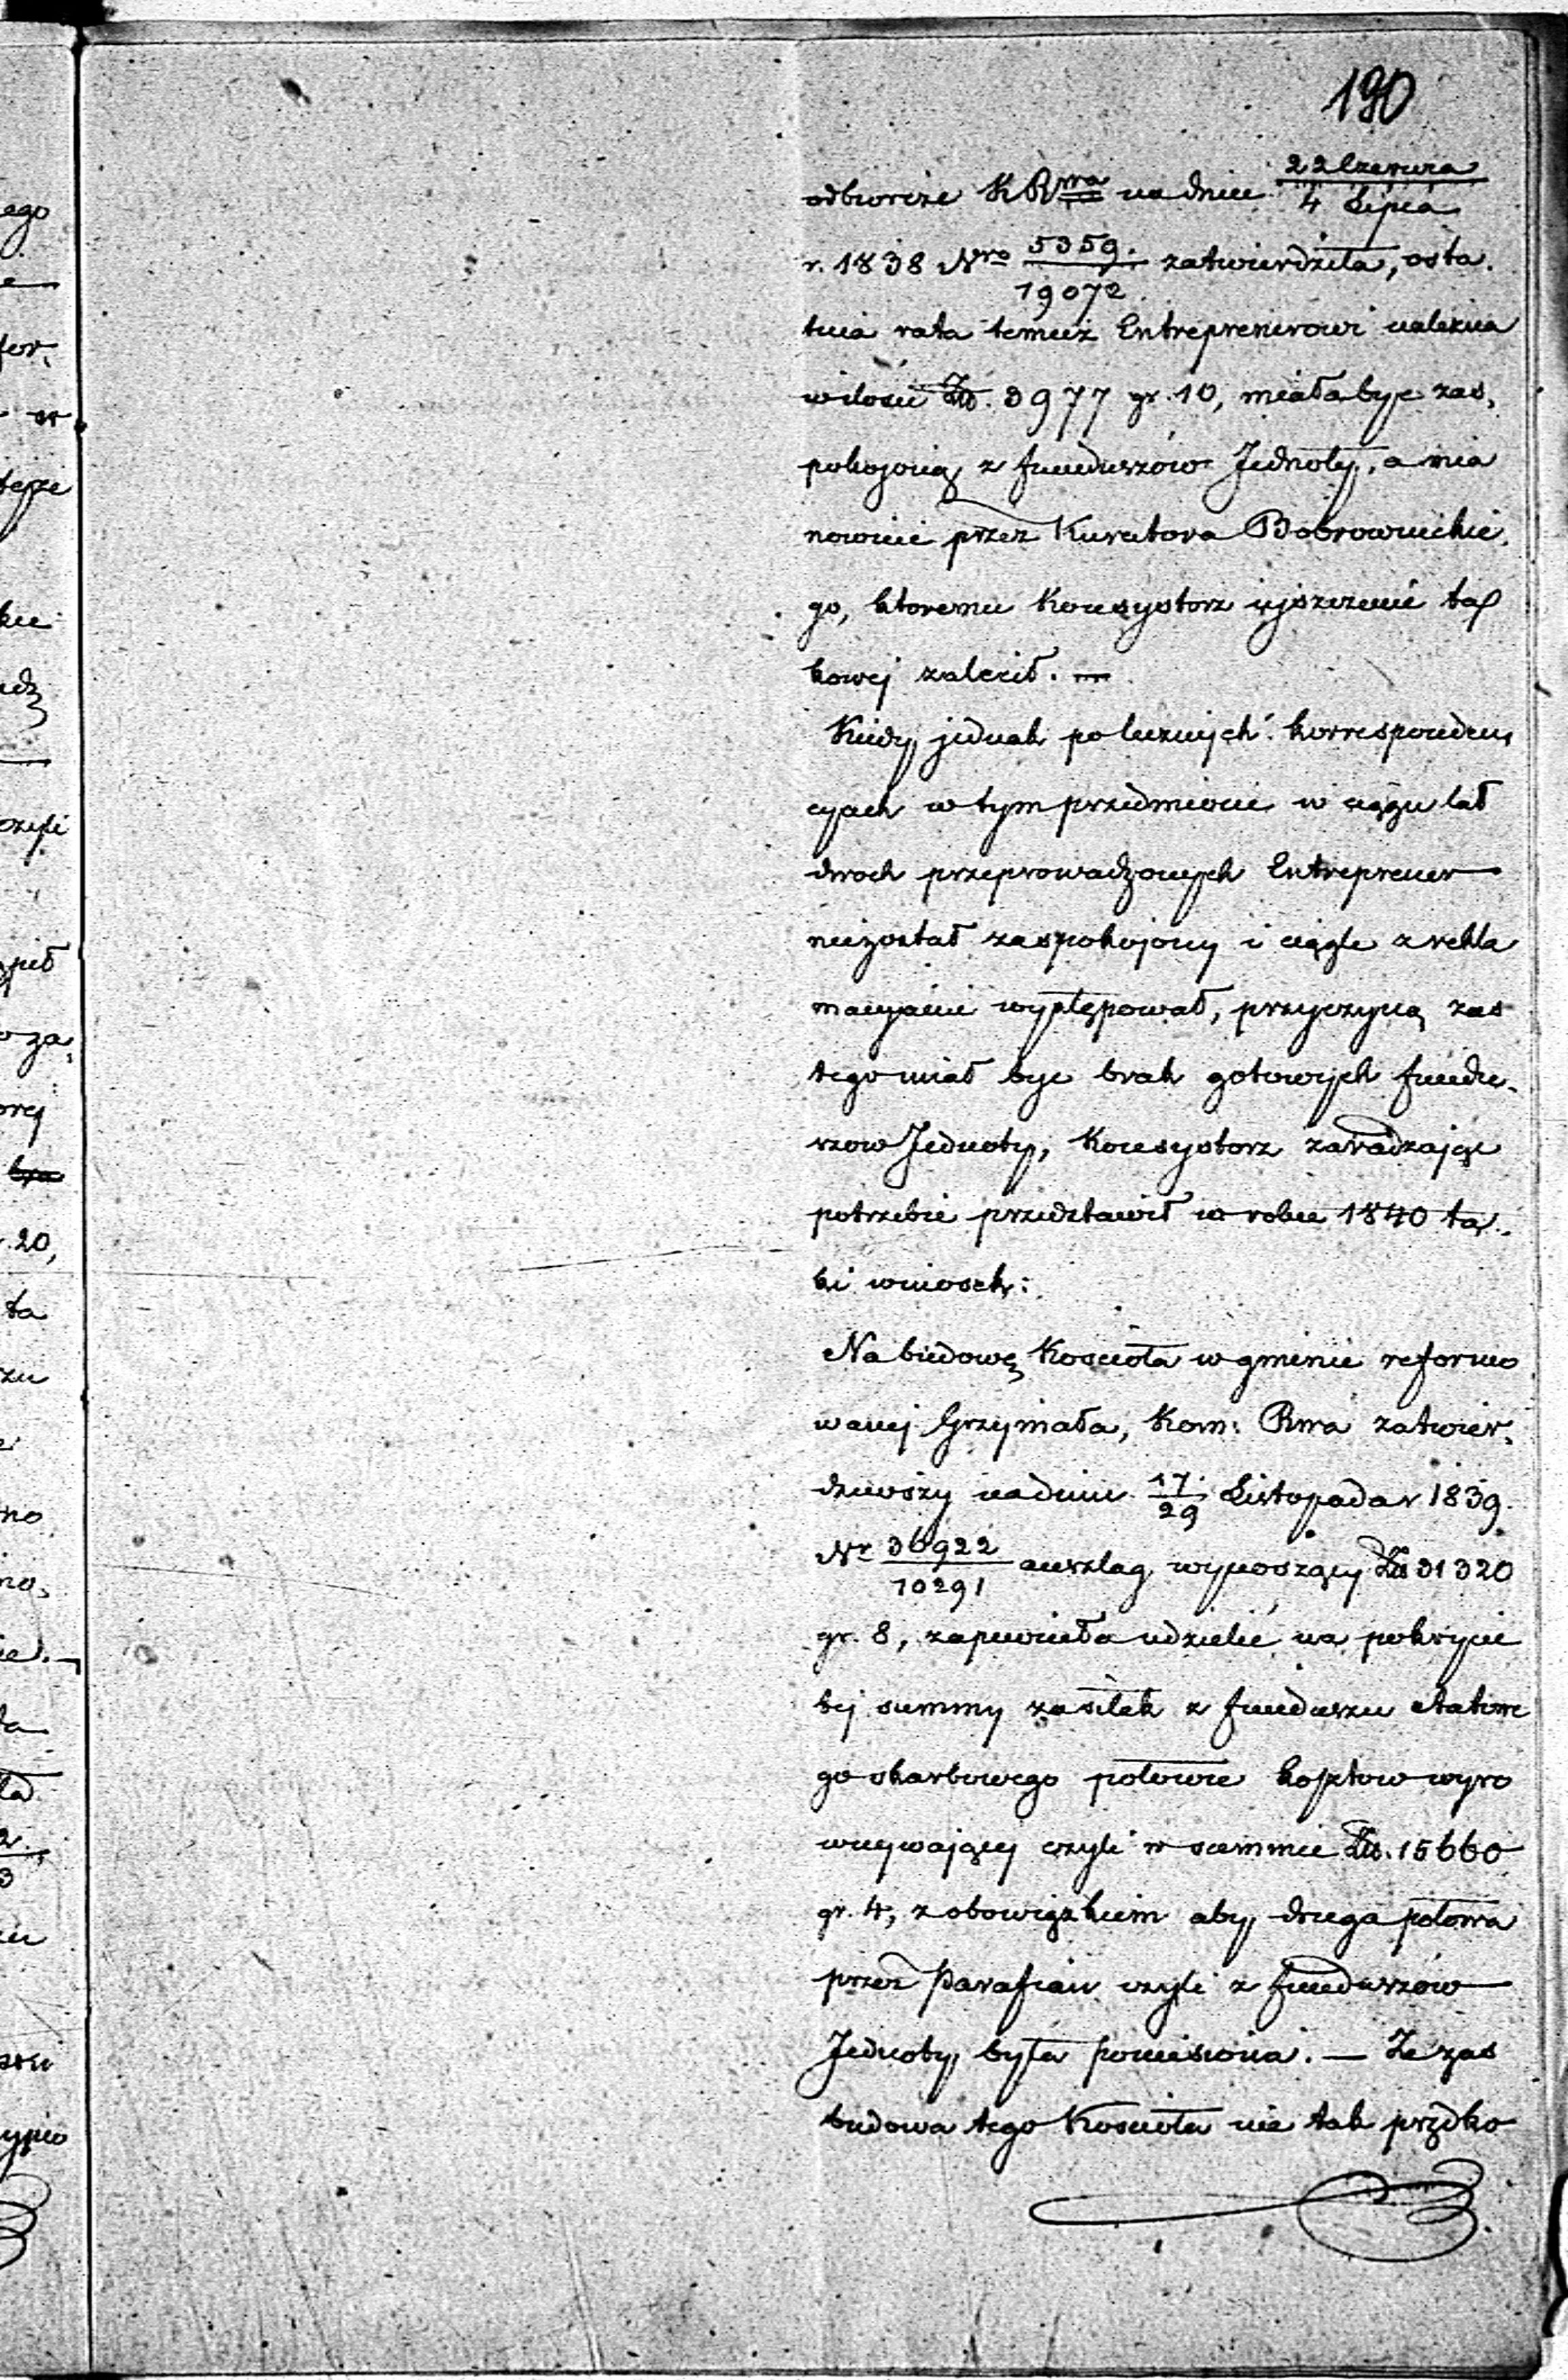 190
odbiorcze K R wa na dniu 22 Czerwca / 4 Lipca
r. 1838 Nro 5359. / 19072. zatwierdziła, osta-
tnia rata temuż Entreprenerowi należna
wilości Zło. 3977 gr. 10, miała być zas-
pokojoną z funduszów Jednoty, a mia
nowicie przez Kuratora Bobrownickie-
go, ktoremu Konsystorz ujszczenie ta
kowej zalecił. —
Kiedy jednak po licznych korresponden
cyach w tym przedmiocie w ciągu lat
dwoch przeprowadzonych Entreprener
niezostał zaspokojony i ciągle z rekla
macyami występował, przyczyną zas
tego miał byc brak gotowych fundu-
szow Jednoty, Konsystorz zaradzając
potrzebie przedstawił w roku 1840 ta-
ki wniosek:
Na budowę Koscioła w gminie reformo
wanej Grzymała, Kom: Rwa zatwier-
dziwszy nadniu 17. / 29 Listopada r 1839.
Nr 36922 / 10291 anszlag wynoszący Zło 31320
gr. 8, zapewniła udzielić na pokrycie
tej summy zasiłek z funduszu etatowe
go skarbowego połowie kosztow wyro
wnywający czyli w summie Zło. 15660
gr. 4, z obowiązkiem aby druga połowa
przez Parafian czyli z funduszów
Jednoty była poniesiona. — Ze zas
budowa tego Koscioła nie tak prędko
ago
20,
ta